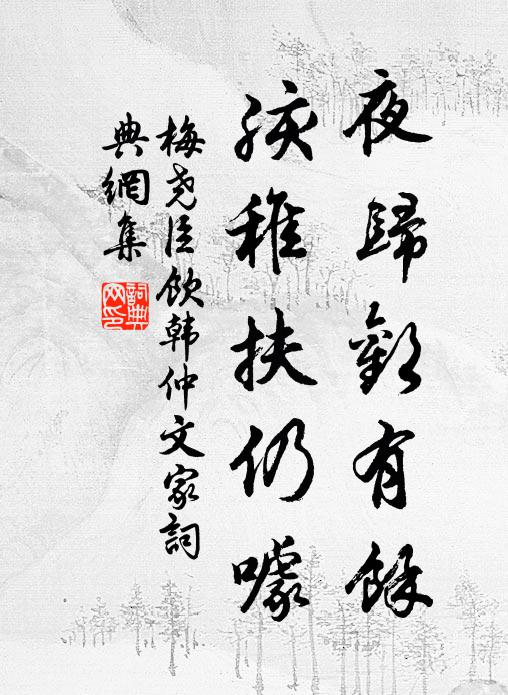 夜歸歡有餘
孩稚扶仍噱
梅尧臣飲韩仲文家詞
典網集
詞典
网印